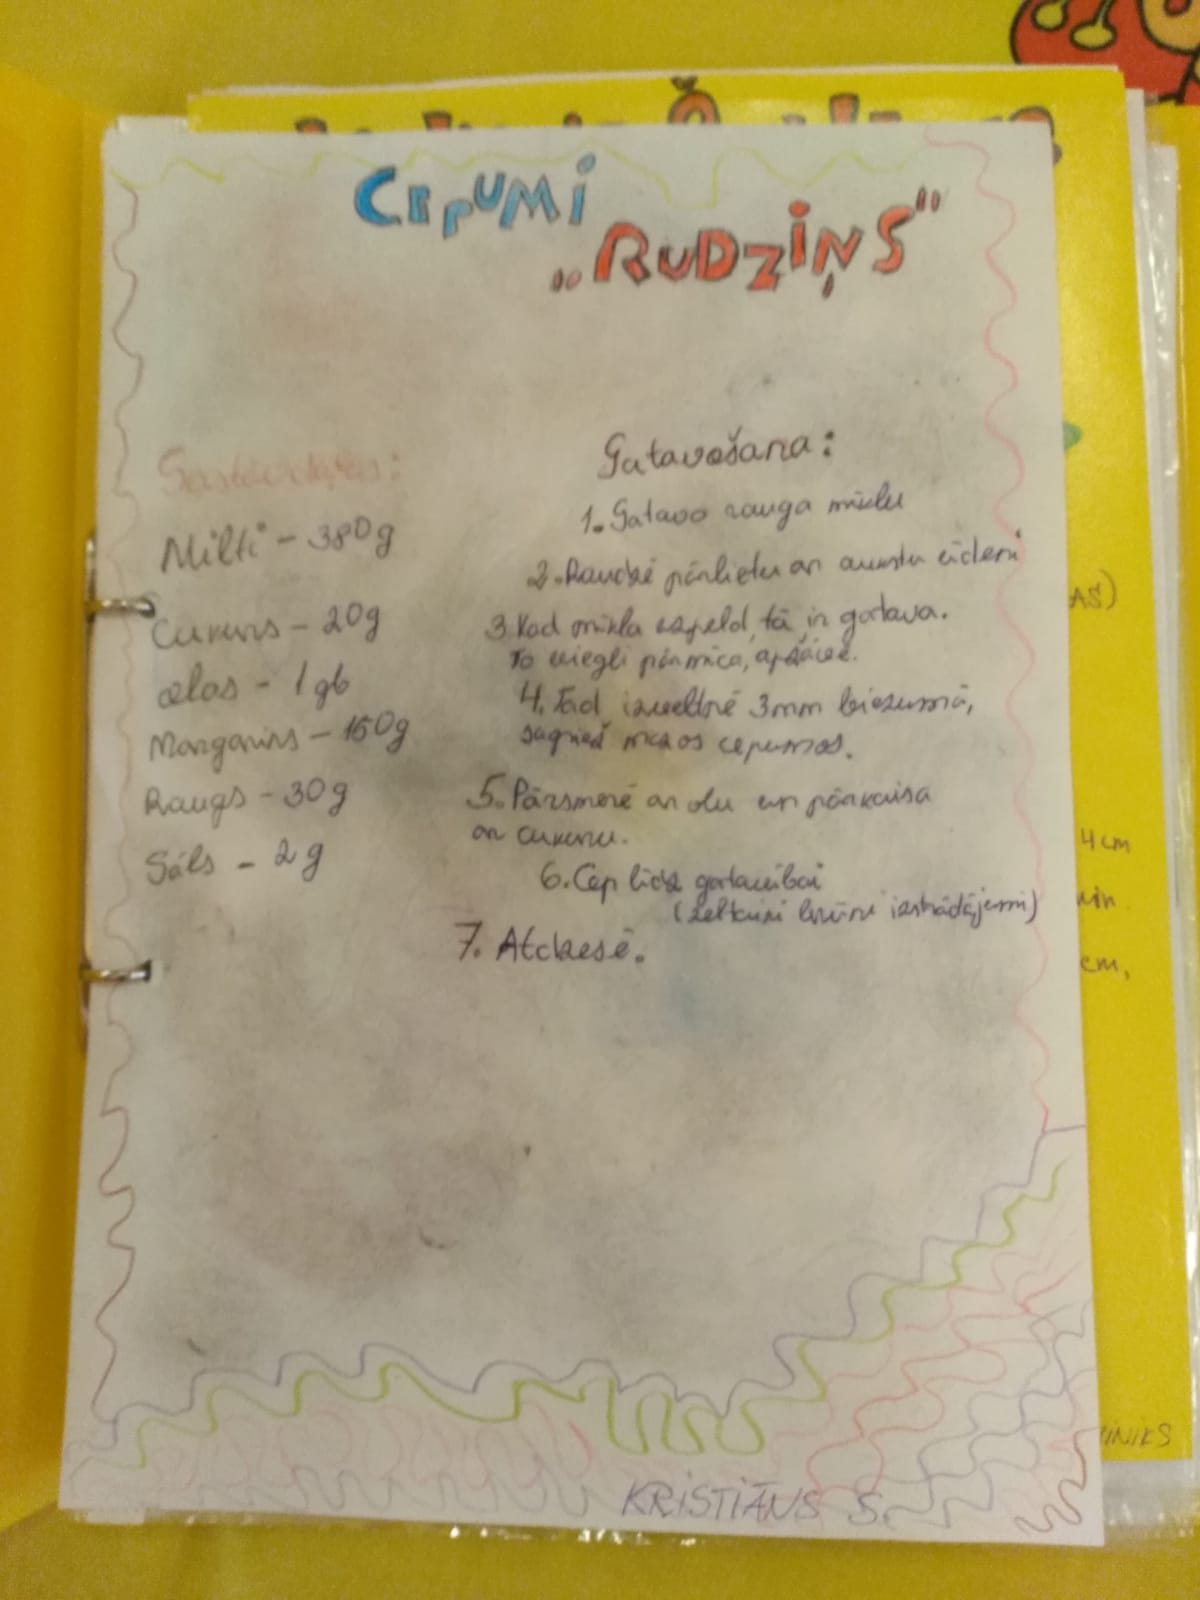 CEPUMI
„RUDZIŅS"
Sastāvdaļas:
Milti - 380g
Cukurs - 20g
olas - 1 gb
Margarīns - 150g
Raugs - 30g
Sāls - 2g
Gatavošana:
1. Gatavo rauga mīklu
2. Traukā pārlietu ar aukstu ūdeni
3. Kad mīkla uzpeld, tā ir gatava.
To viegli pārmīca, apžāvē.
4. Tad izveltnē 3mm biezumā,
sagriež mazos cepumos.
5. Pārsmērē ar olu un pārkaisa
ar cukuru.
6. Cep līdz gatavībai
(zeltaini brūni izstrādājumi)
7. Atdzesē.
KRISTIĀNS S.
AŠ)
4 cm
min.
cm,
INIKS